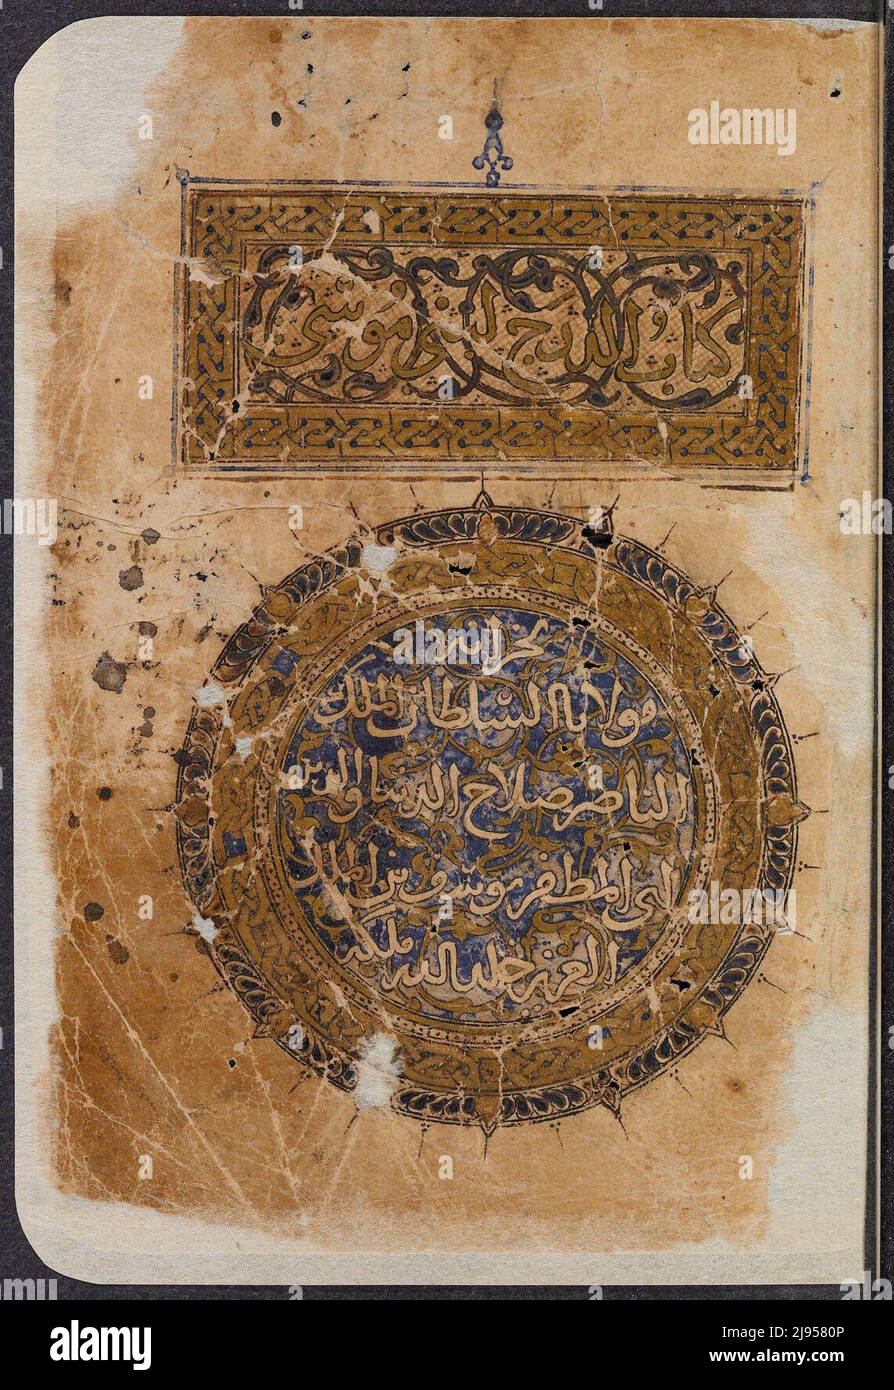 كتاب الدرج لبنى موسى
لخزانة
مولانا السلطان الملك
الناصر صلاح الدنيا والدين
ابى المظفر يوسف بن الملك
العزيز خلد الله ملكه
alamy
alamy
alamy
Image ID: 2J9580P
www.alamy.com